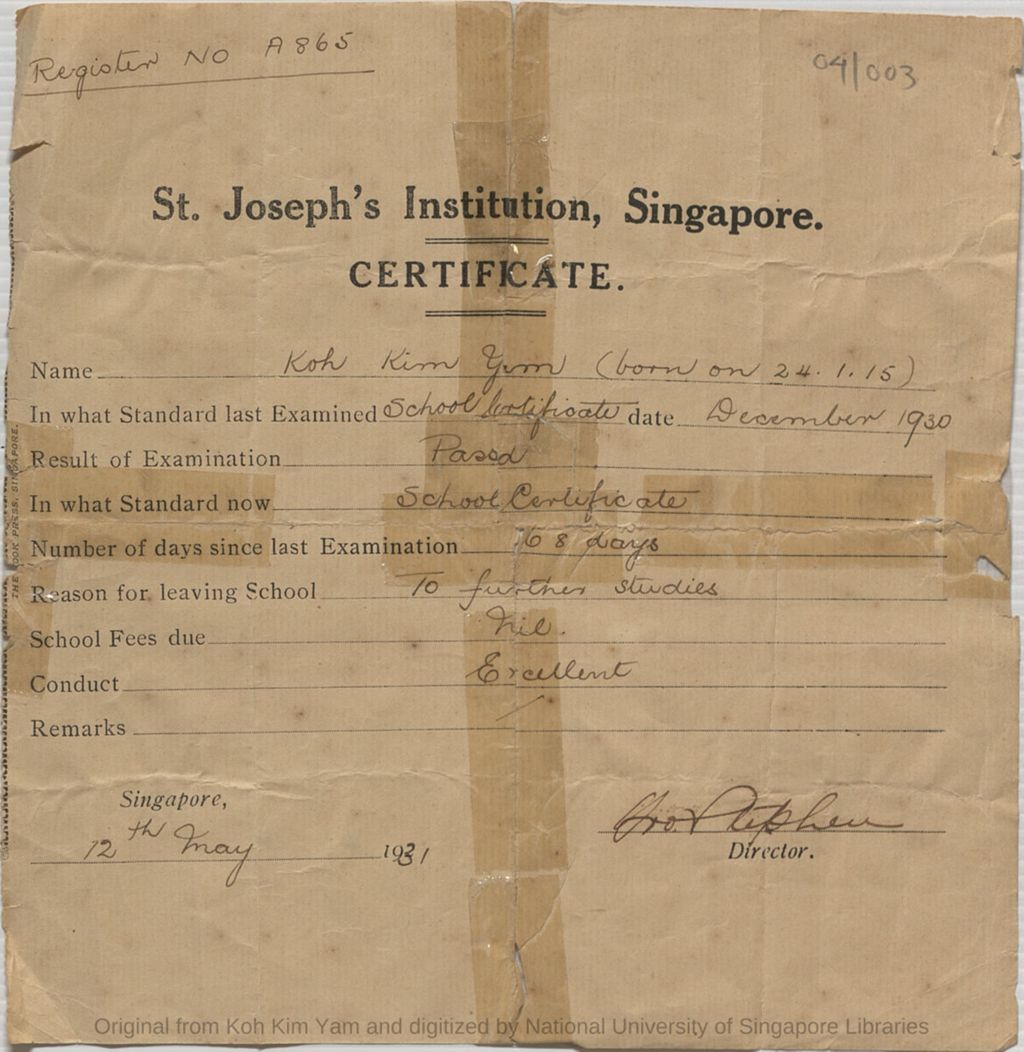 Register NO A865
04/003
St. Joseph's Institution, Singapore.
CERTIFICATE.
Name Koh Kim Yam (born on 24.1.15)
In what Standard last Examined School Certificate date December 1930
Result of Examination Passed
In what Standard now School Certificate
Number of days since last Examination 68 days
Reason for leaving School To further studies
School Fees due Nil.
Conduct Excellent
Remarks
Singapore,
12th May 1931
Bro. Stephen
Director.
THE BOOK PRESS, SINGAPORE.
Original from Koh Kim Yam and digitized by National University of Singapore Libraries